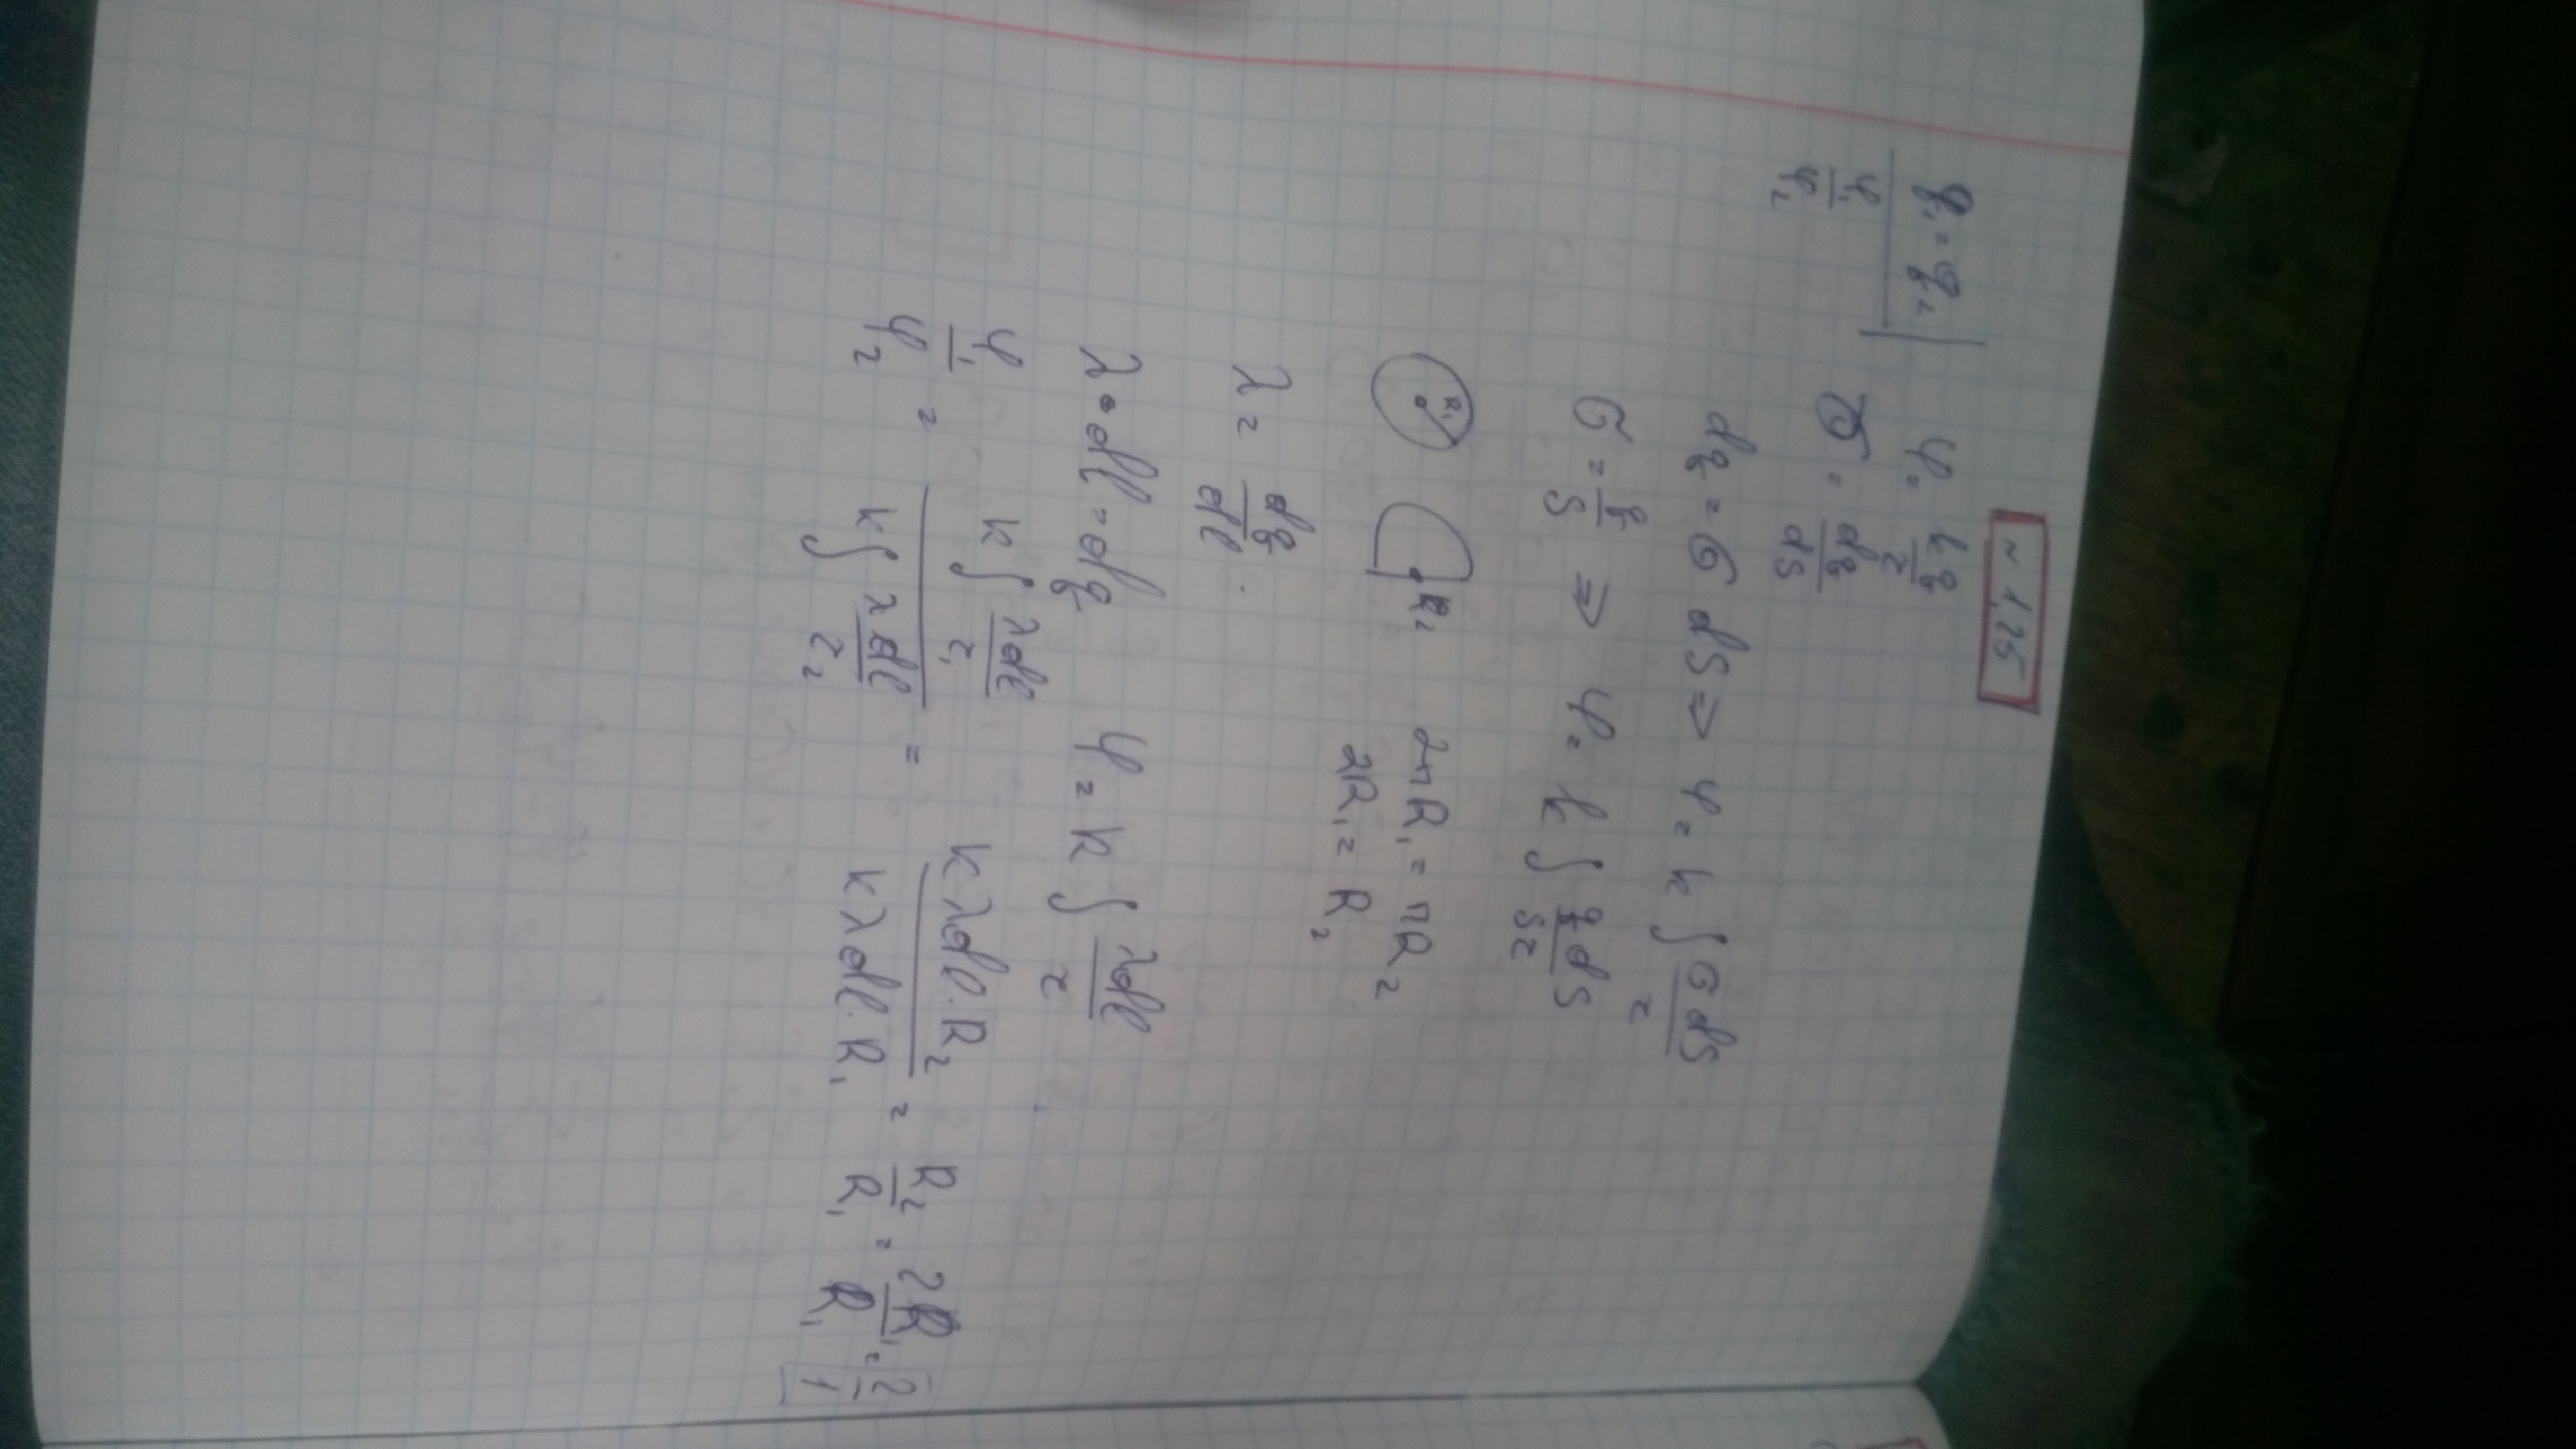 ~ 1,25
q₁ = q₂
φ₁/φ₂
φ = kq/r
σ = dq/dS
dq = σ dS ⇒ φ = k ∫ σdS/r
σ = q/S ⇒ φ = k ∫ q dS/Sr
R₁ R₂ 2πR₁ = πR₂
2R₁ = R₂
λ = dq/dl
λ · dl = dq φ = k ∫ λdl/r
φ₁/φ₂ = (k ∫ λdl/r₁)/(k ∫ λdl/r₂) = kλdl·R₂/kλdl·R₁ = R₂/R₁ = 2R₁/R₁ = 2/1